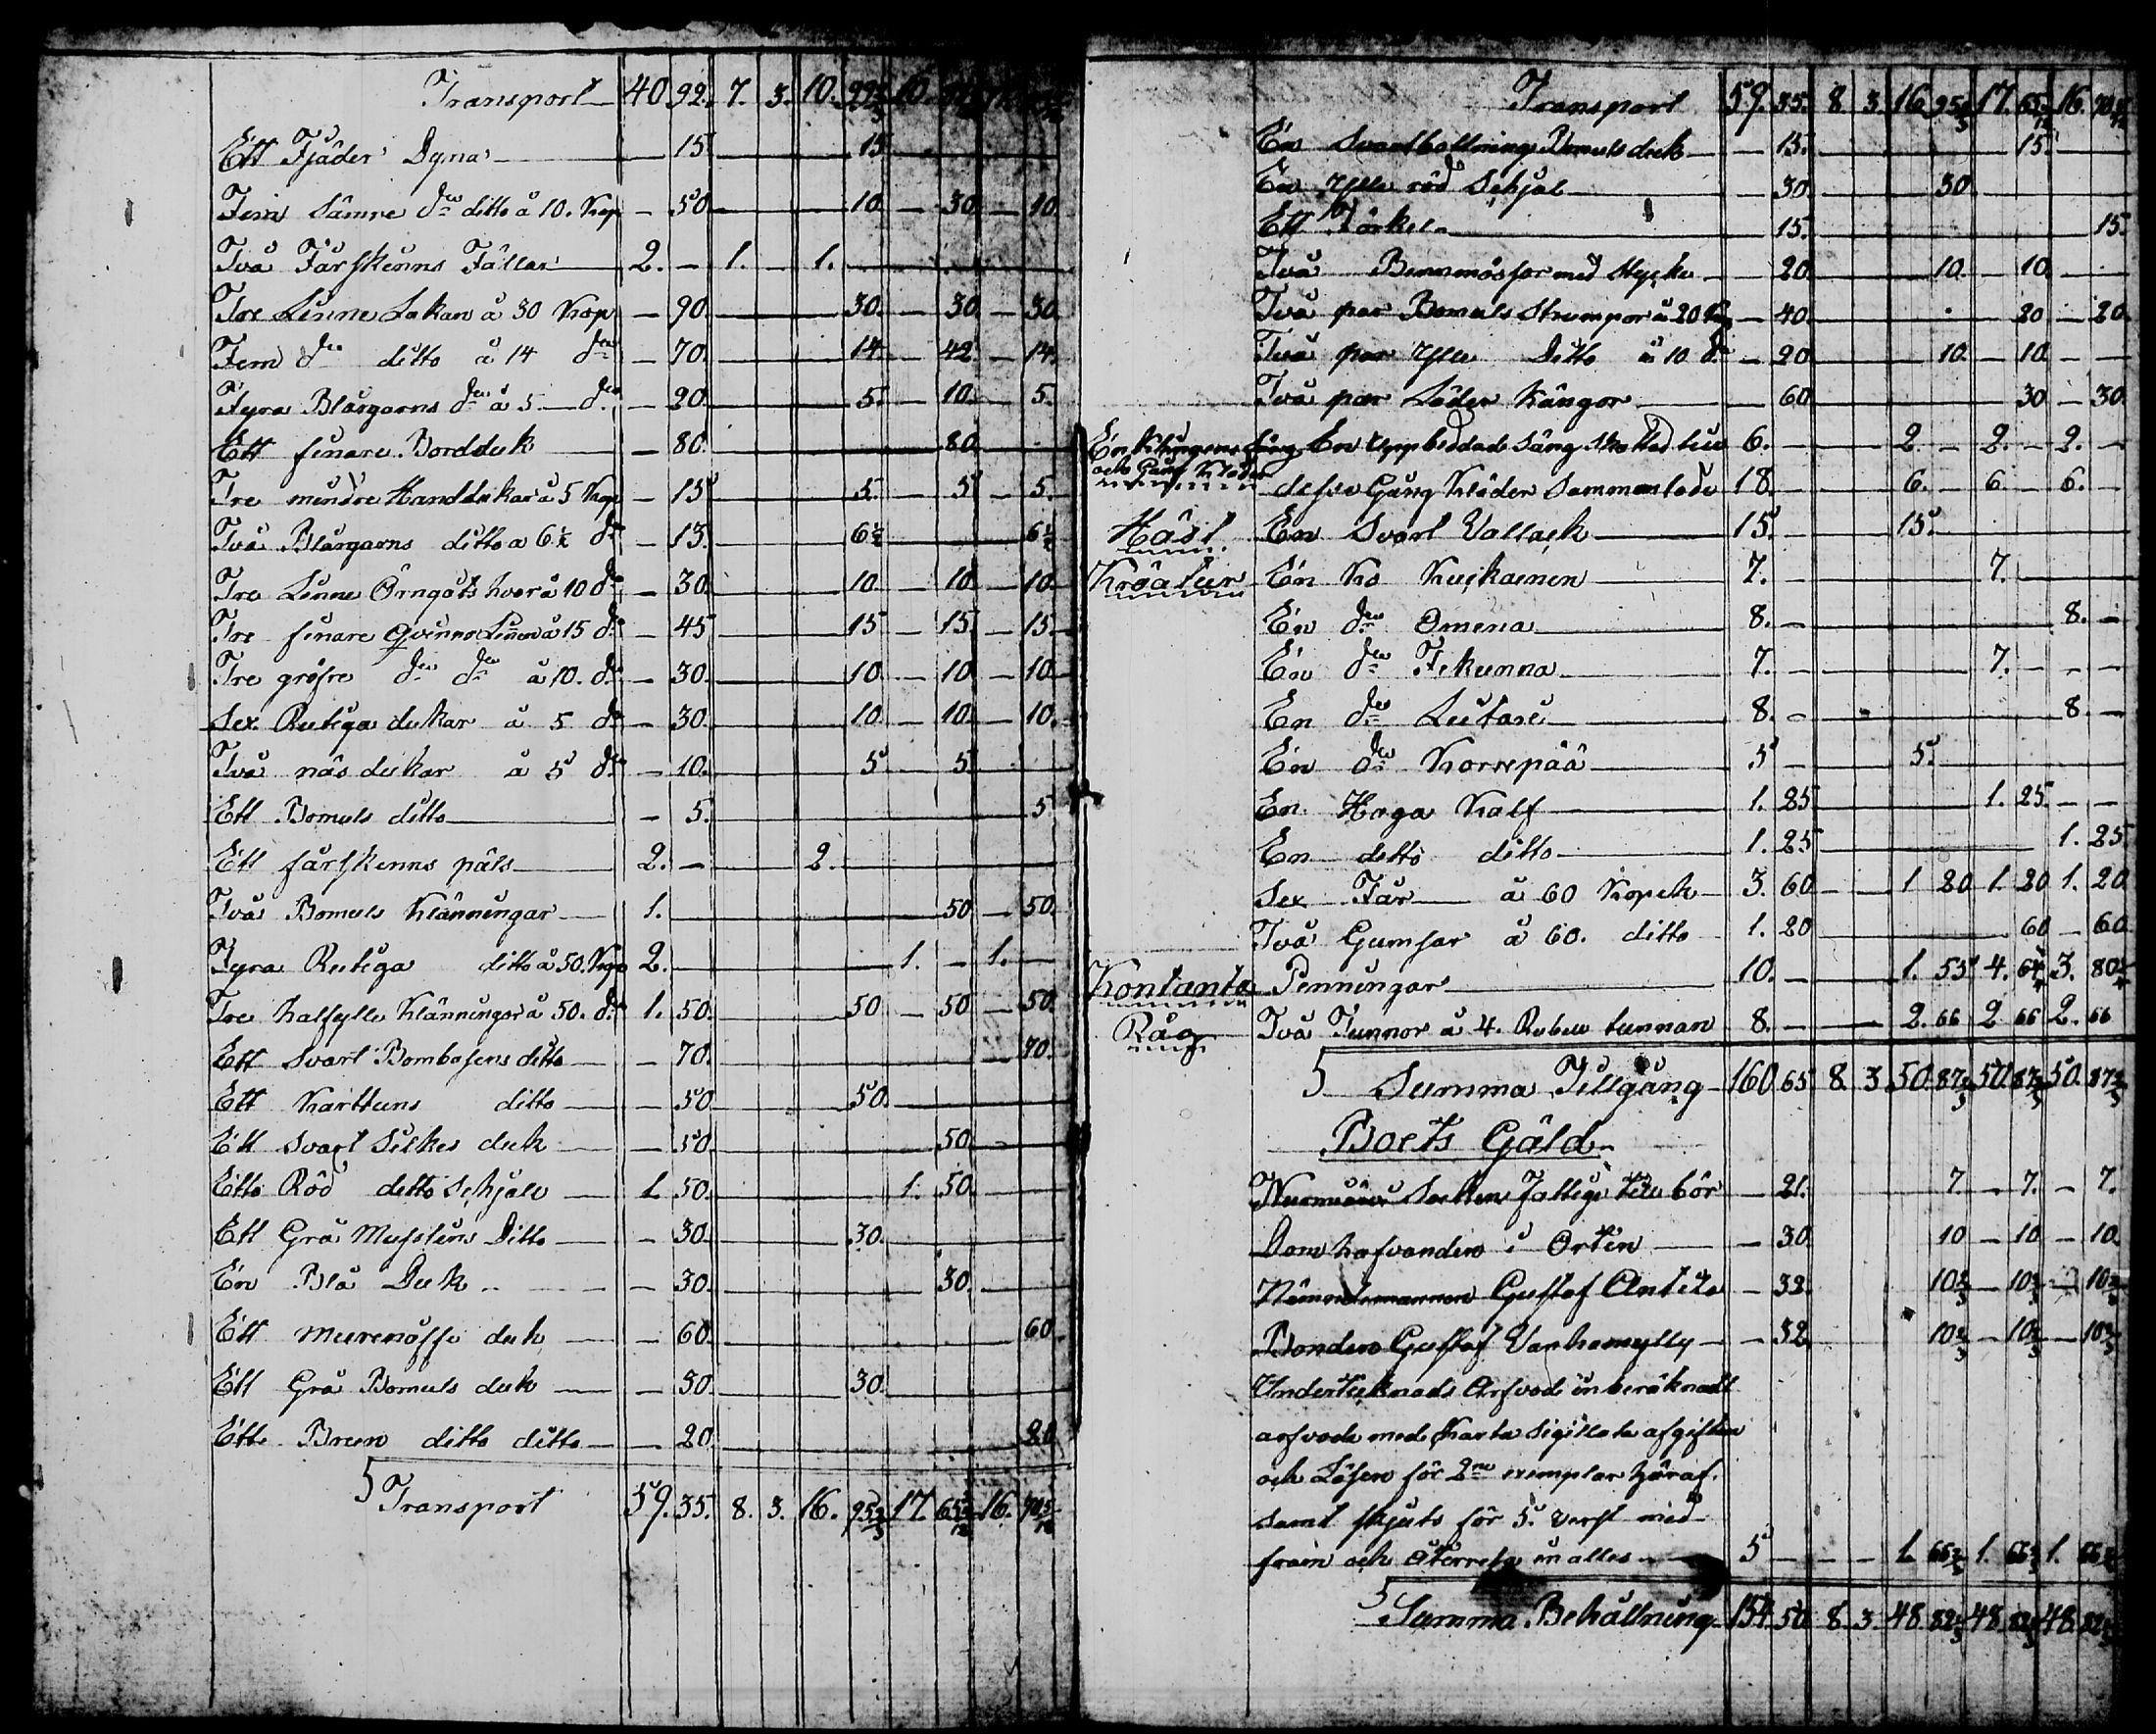 Transport 40 92. 7. 3. 10. 10.
Ett Fjäder Dyna — 15 15
Fem Sämre d:o ditto a 10. Kop — 50 10 — 30 — 10.
Två Fårskinns Fällar 2. — 1. — 1.
Tre Linne Lakan a 30 Kop — 90. 30. — 30. — 30.
Fem d:o ditto a 14 d:o — 70. 14 — 42 — 14.
Fyra Blårgarns d:o a 5 — d:o — 20. 5. — 10. — 5.
Ett finare Bordduk — 80. 80.
Tre mindre Handdukar a 5 Kop — 15 5. — 5 — 5.
Två Blårgarns ditto a 6½ d:o — 13. 6½ 6½
Tre Linne Örngåts hvar a 10 d:o — 30. 10. — 10. — 10.
Tre finare Qvinno Linnen a 15 d:o — 45 15 — 15. — 15.
Tre gröfre d:o d:o a 10. d:o — 30. 10. — 10 — 10
Sex Rutiga dukar a 5 d:o — 30. 10. — 10. — 10.
Två näs dukar a 5 d:o — 10. 5 — 5.
Ett Bomuls ditto — 5. 5
Ett fårskinns päls 2. — 2.
Två Bomuls Klänningar 1. 50 — 50.
Fyra Rutiga ditto a 50. Kop 2. 1. — 1.
Tre halfylle Klänningar a 50. d:o 1. 50. 50 — 50 — 50.
Ett Svart Bombasens ditto — 70. — 70.
Ett Karttuns ditto — 50 50.
Ett Svart Silkes duk — 50. 50 —
Ett Röd ditto Schjal 1. 50. 1. 50.
Ett Grå Musslins Ditto — 30. 30.
En Blå Duk — 30. 30.
Ett duk — 60. 60
Ett Grå Bomuls duk — 30. 30.
Ett Brun ditto ditto — 20 20
Transport 59. 35. 8. 3. 16. 95⅔ 17. 16.
Transport 59. 35. 8. 3. 16. 95⅔ 17. 16.
En Svartbottning Bomuls duk — 15. 15.
En Ylle röd Schjal 30. 30.
Ett 15. 15.
Två med stycke — 20. 10. — 10.
Två par Bomuls Strumpor a 20 Kop — 40. 20 — 20.
Två par Ylle Ditto a 10 d:o — 20 10. — 10. — —
Två par Läder Kängor — 60 30 — 30.
En Uppbäddad Säng skattad till 6. — 2. — 2. — 2. —
och Gång Kläder
Gång Kläder Sammanlade 18. — 6. — 6 — 6. —
Häst En Svart Vallack 15. — 15.
Kreatur En Ko Kuikainen 7. — 7.
En d:o Omena 8. — 8. —
En d:o 7. — 7. — — —
En d:o Lustare 8. — 8. —
En d:o Korrepää 5 — 5.
En Haga Kalf 1. 25 1. 25. — —
En ditto ditto 1. 25 1. 25
Sex Får a 60 Kopek 3. 60 1 20 1. 20 1. 20
Två Gumsar a 60. ditto 1. 20 60 — 60
Kontanta Penningar 10. — 1. 55 4. 3.
Råg Två Tunnor a 4. Rubel tunnan 8. — 2. 66 2 66 2. 66
Summa Tillgång 160 65 8 3 50. 87⅔ 50. 87⅔ 50. 87⅔
Boets Gäld
Socken Fattige till bör — 21. 7. — 7. — 7.
Domhafvanden i Orten — 30. 10 — 10 — 10.
Nämndemannen Gustaf Antila — 32. 10⅔ — 10⅔ — 10⅔
Bonden Gustaf Vanhamylly — 32 10⅔ — 10⅔ — 10⅔
Undertecknads Arfvode inberäknadt
arfvode med Karta Sigillata afgiften
och Lösen för 2:ne exemplar häraf.
samt skjuts för 5. verst med
fram och återresa in alles 5 — — — 1. 66⅔ 1. 66⅔ 1. 66⅔
Summa Behållning 154. 50 8 3 48. 82⅓ 48. 82⅓ 48. 82⅓